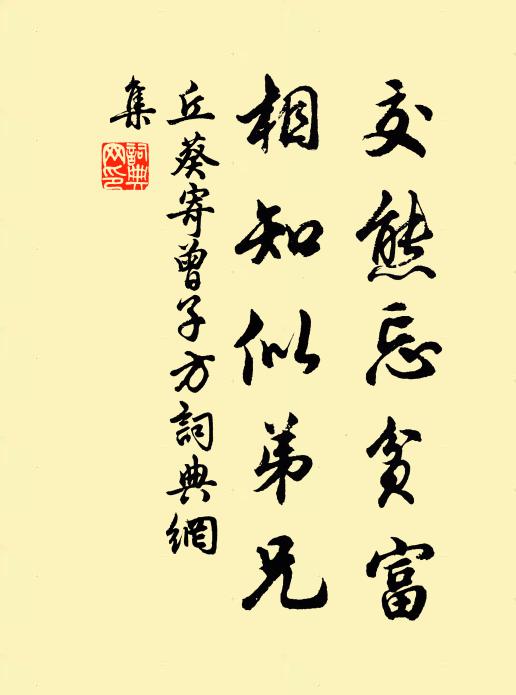 交態忘貧富
相知似弟兄
丘葵寄曾子方詞典網
集
詞典網印